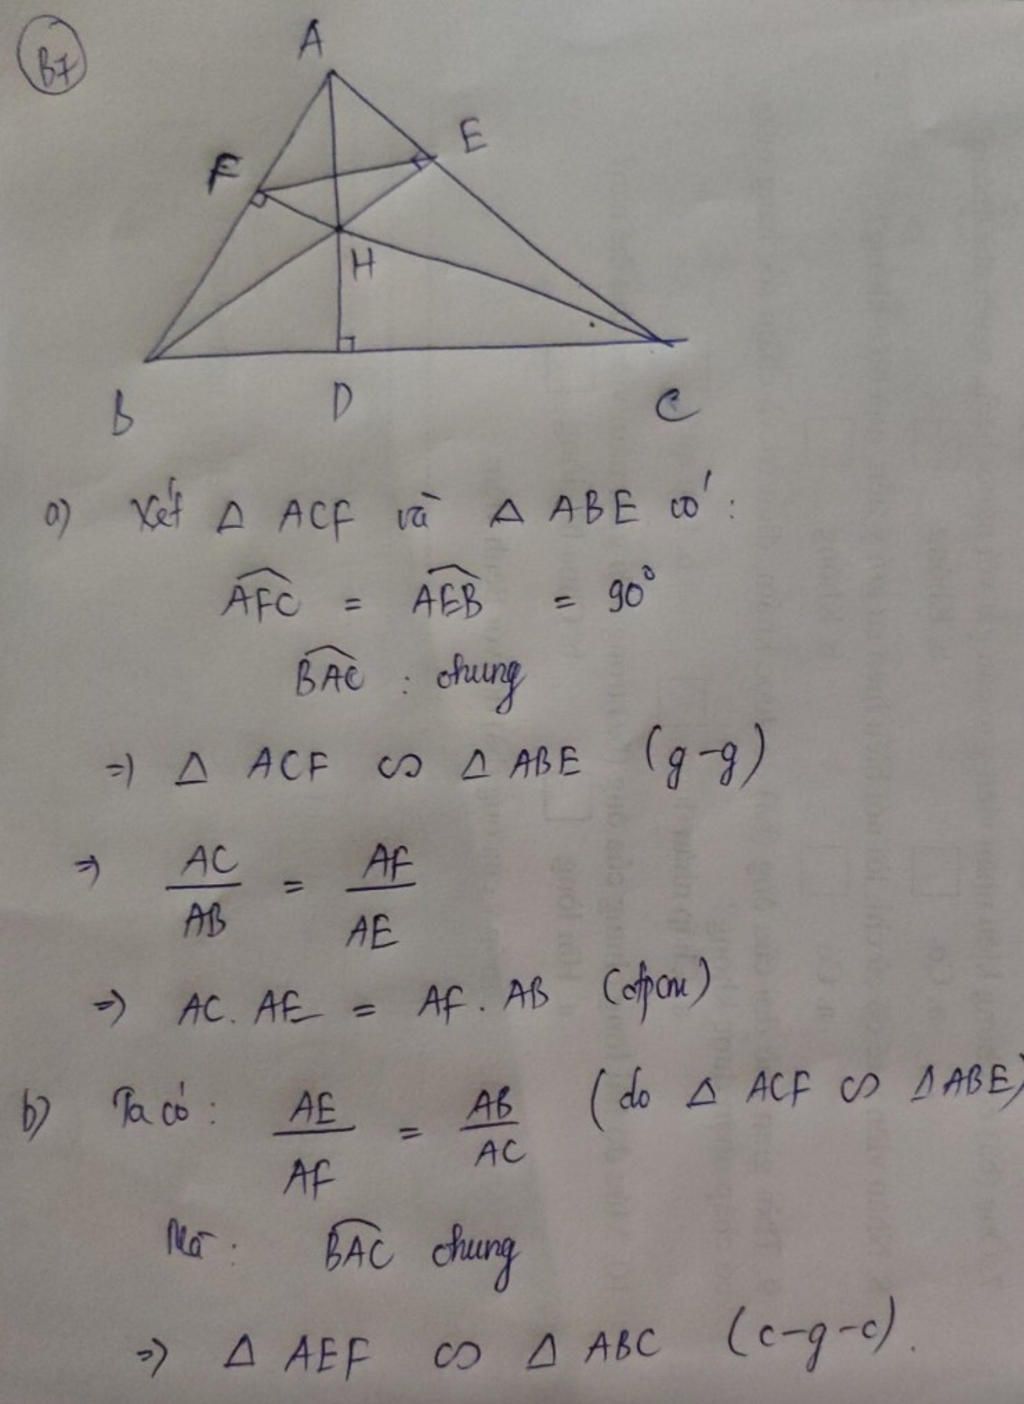 B7
A
F
E
H
B
D
C
a) Xét Δ ACF và Δ ABE có:
$\widehat{AFC}$ = $\widehat{AEB}$ = 90°
$\widehat{BAC}$ : chung
=> Δ ACF ∽ Δ ABE (g-g)
=> $\frac{AC}{AB}$ = $\frac{AF}{AE}$
=> AC. AE = AF . AB (đpcm)
b) Ta có: $\frac{AE}{AF}$ = $\frac{AB}{AC}$ (do Δ ACF ∽ ΔABE)
Mà: $\widehat{BAC}$ chung
=> Δ AEF ∽ Δ ABC (c-g-c).